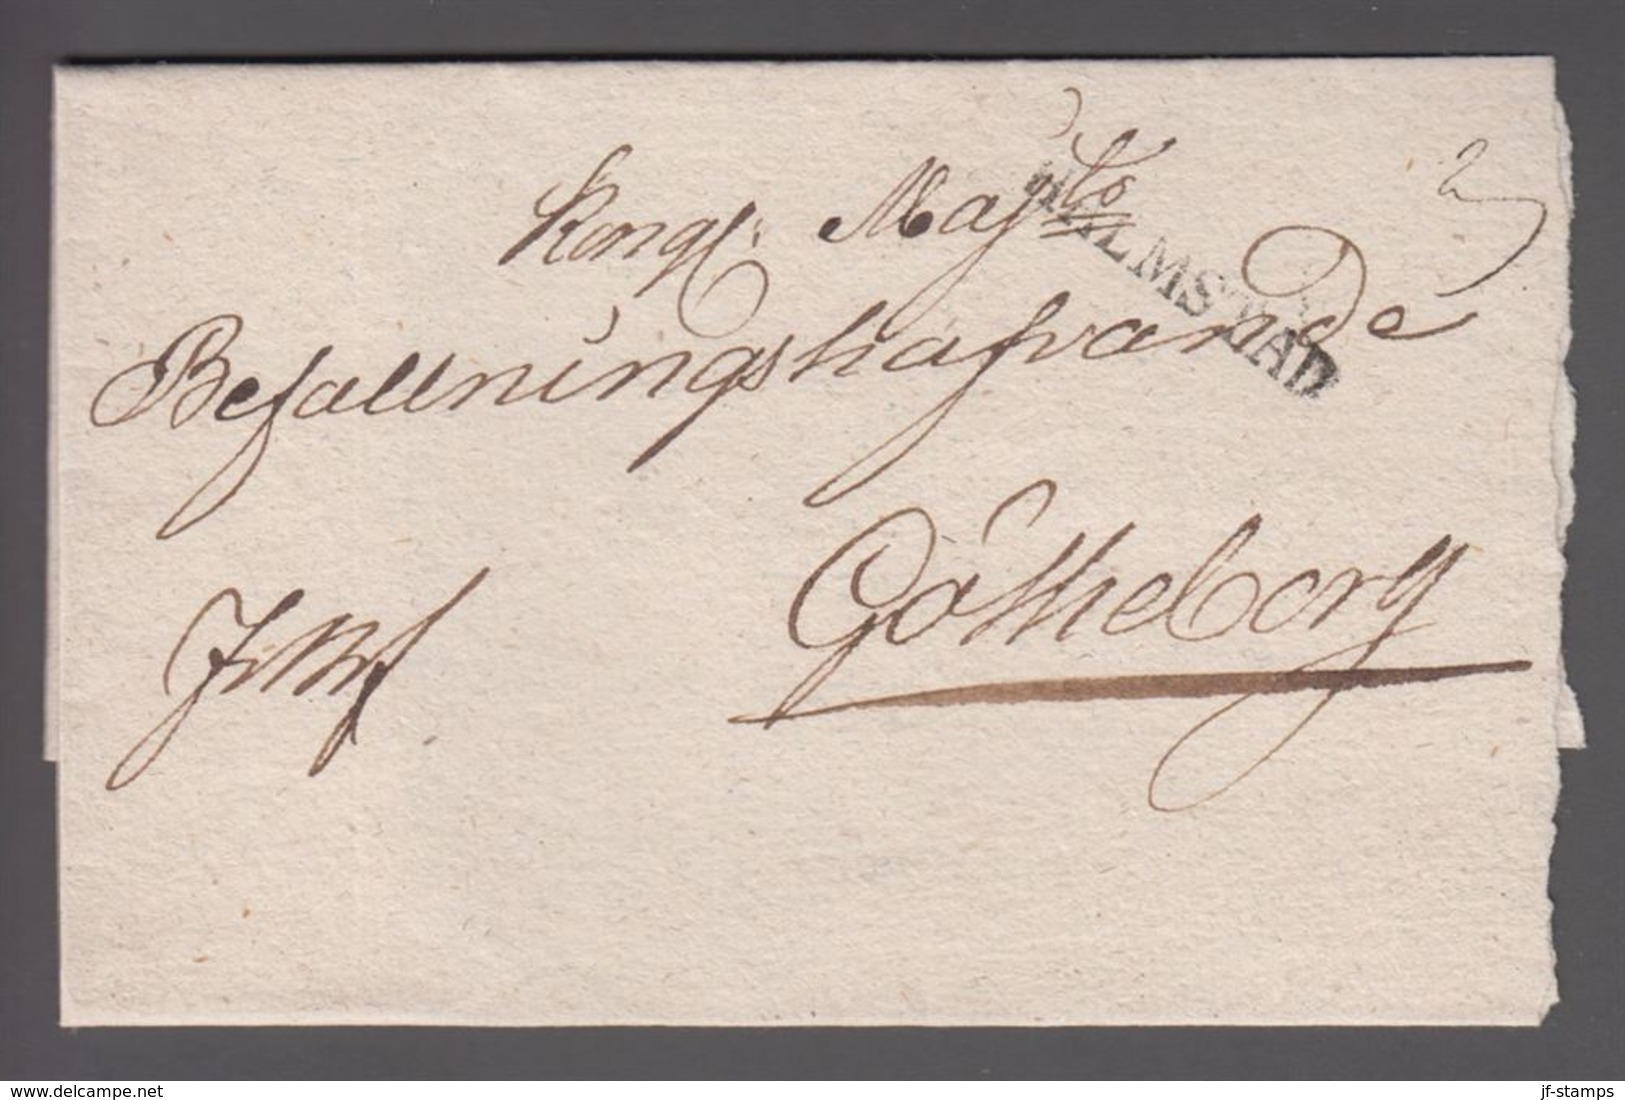 Kongl: Majts
HALMSTAD
Befallningshafvande
Götheborg
delcampe.net
jf-stamps